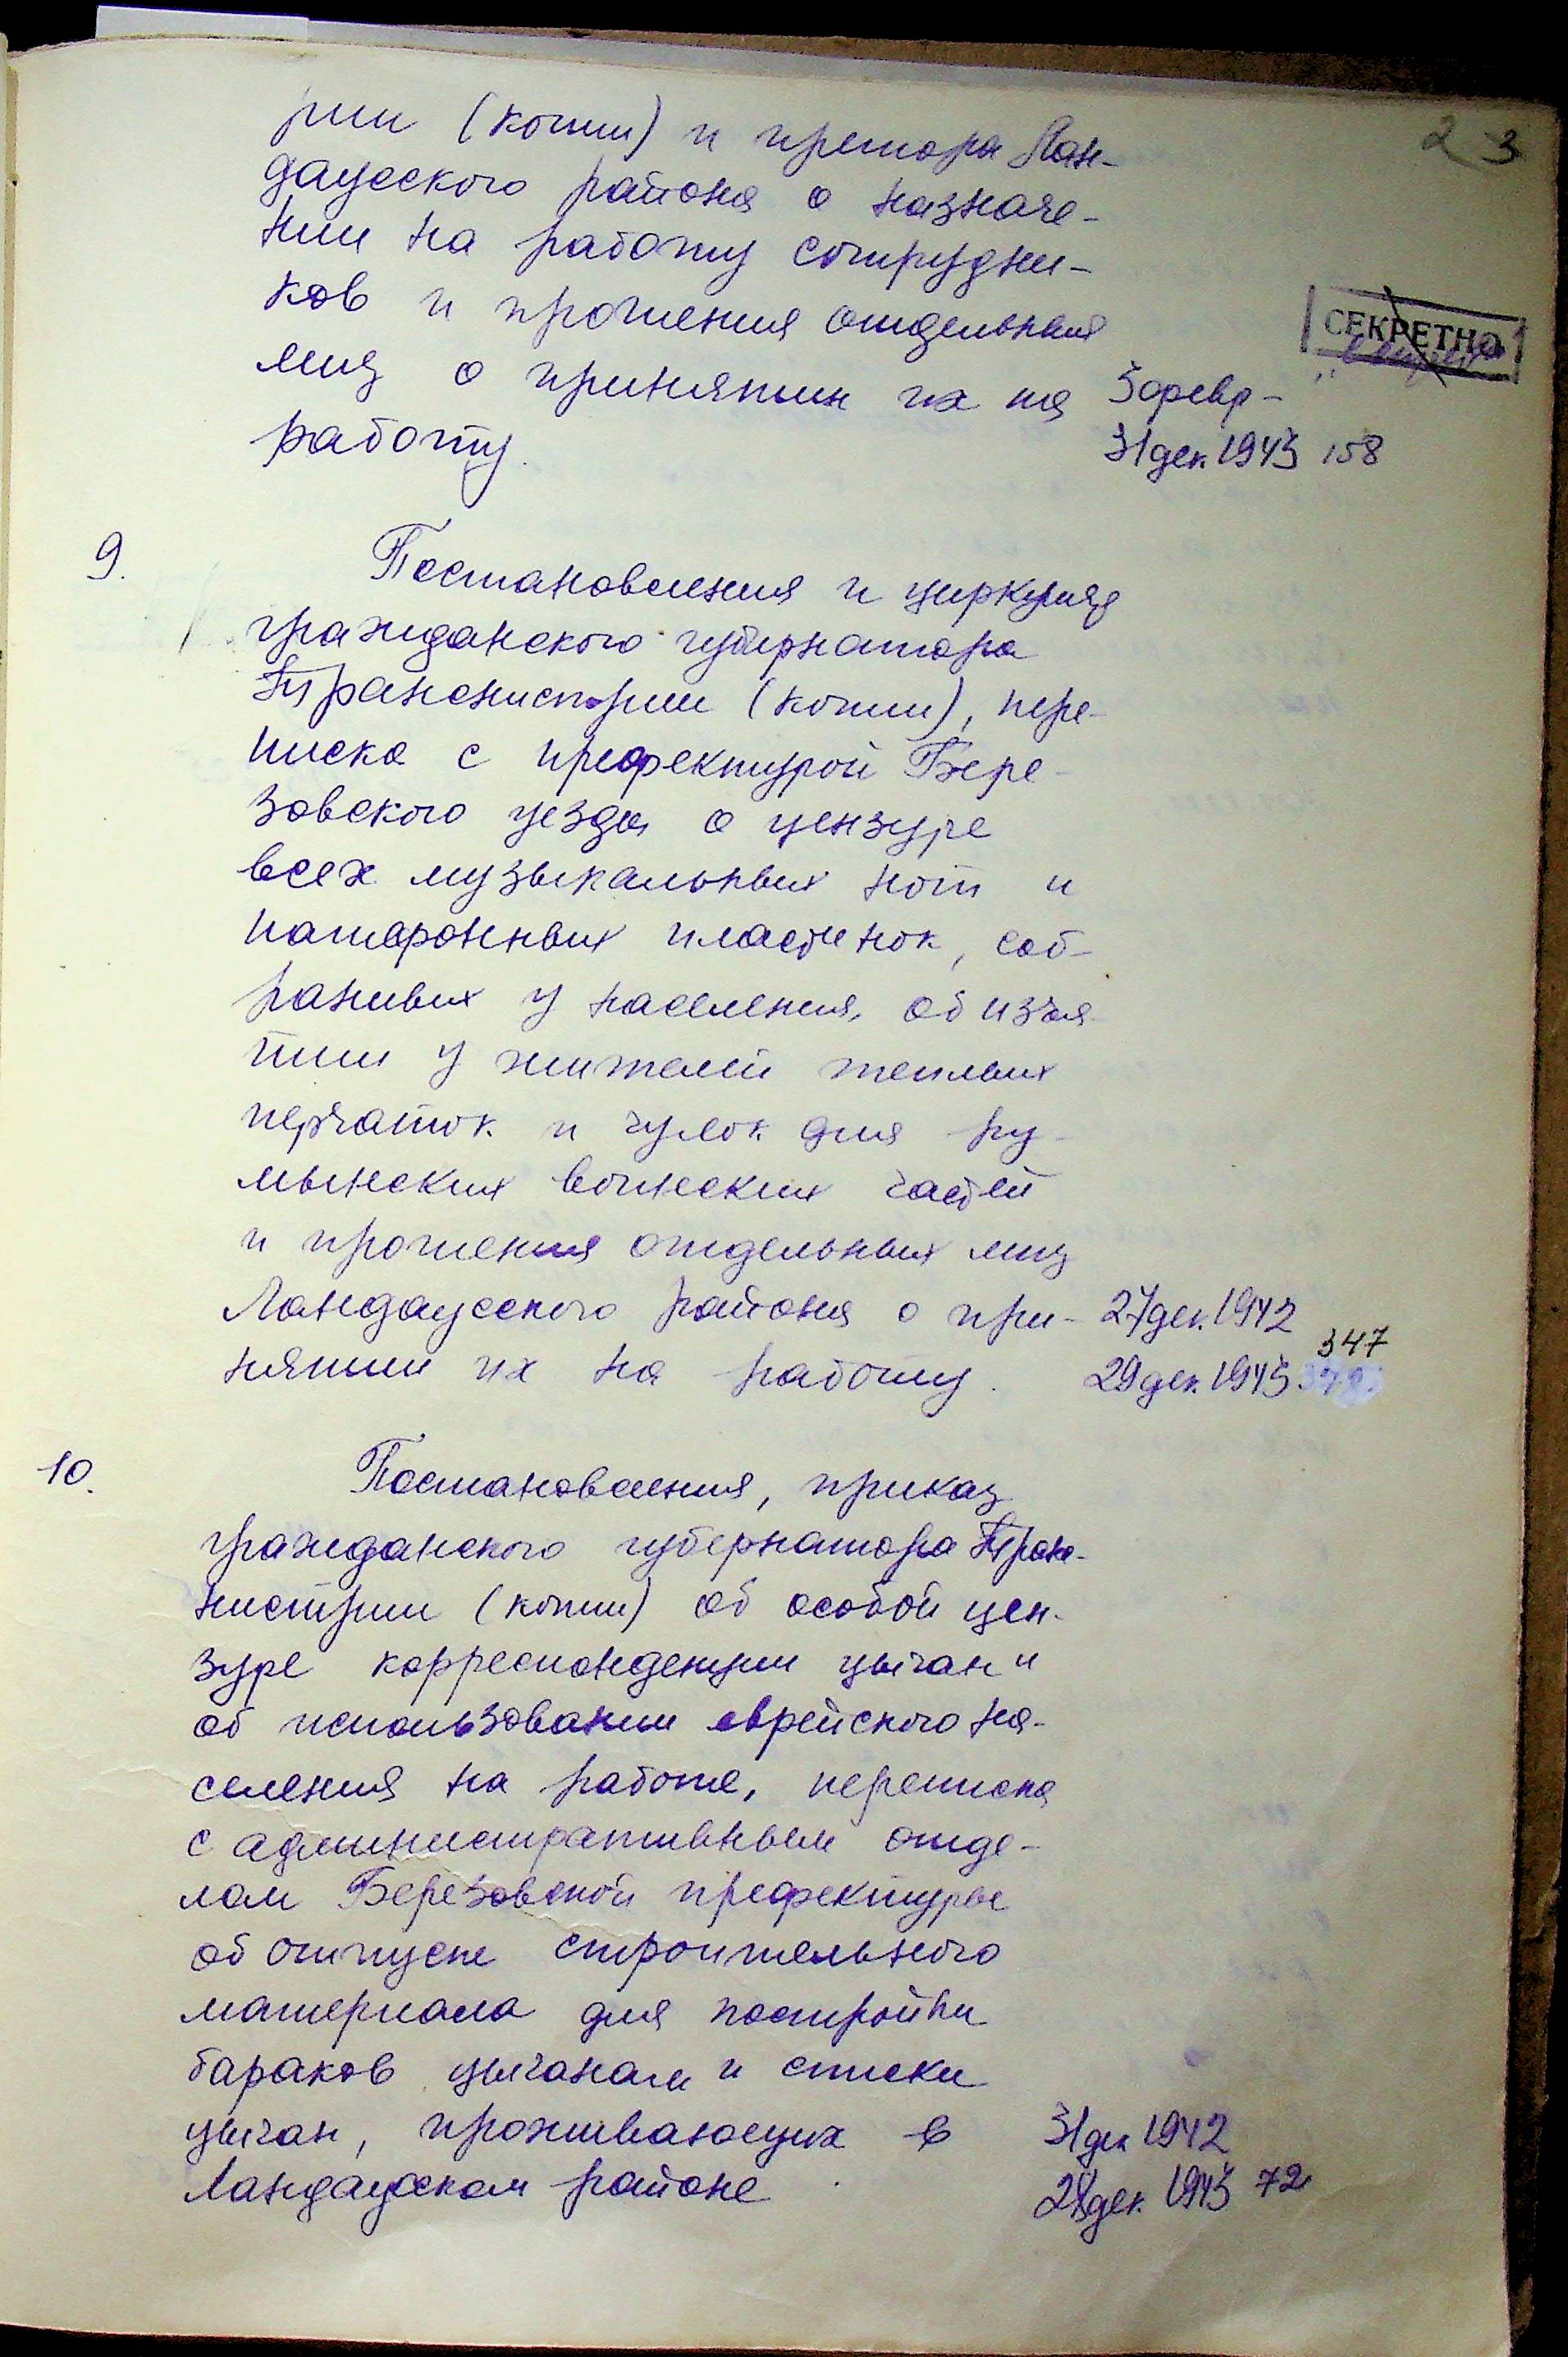 2 3
рии (копии) и претора Лан-
дауского района о назначе-
нии на работу сотрудни-
ков и прошения отдельных
СЕКРЕТНО
лиц о принятии их на 3 февр -
работу. 31 дек. 1943 158
9. Постановления и циркуляр
гражданского губернатора
Транснистрии (копии), пере-
писка с префектурой Бере-
зовского уезда о цензуре
всех музыкальных нот и
патефонных пластинок, соб-
ранных у населения, об изъя-
тии у жителей теплых
перчаток и чулок для ру-
мынских воинских частей
и прошения отдельных лиц
Ландауского района о при- 27 дек. 1942
347
нятии их на работу. 29 дек. 1943
10. Постановления, приказ
гражданского губернатора Транс-
нистрии (копии) об особой цен-
зуре корреспонденции цыган и
об использовании еврейского на-
селения на работе, переписка
с административным отде-
лом Березовской префектуры
об отпуске строительного
материала для постройки
бараков цыганам и списки
цыган, проживающих в 31 дек 1942
Ландауском районе дек. 1943 72